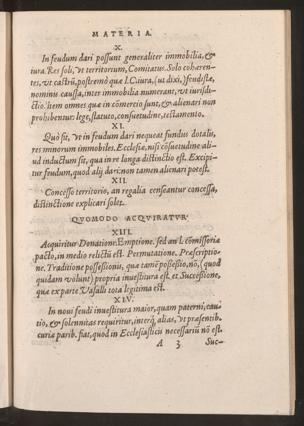 MATERIA.
X.
In feudum dari possunt generaliter immobilia, &
iura. Res soli, vt territorium, Comitatus. Solo cohæren-
tes, vt castrũ, postremò quæ I. Ciuira, (ut dixi,) feudistæ,
nominis caussa, inter immobilia numerant, vt iurisdi-
ctio. Item omnes quæ in cõmercio sunt, & alienari non
prohibentur: lege, statuto, consuetudine, testamento.
XI.
Quò sit, vt in feudum dari nequeat fundus dotalis,
res minorum immobiles. Ecclesiæ, nisi cõsuetudine ali-
ud inductum sit, qua in re longa distinctio est. Excipi-
tur feudum, quod alij dari non tamen alienari potest.
XII.
Concesso territorio, an regalia censeantur concessa,
distinctione explicari solet.
QVOMODO ACQVIRATVR
XIII.
Acquiritur Donatione. Emptione. sed an l. cõmissoria
pacto, in medio relictũ est. Permutatione. Præscriptio-
ne. Traditione possessionis, quæ tamē possessio, nõ, (quod
quidam volunt) propria inuestitura est. et Successione,
quæ ex parte Vasalli tota legitima est.
XIV.
In noui feudi inuestitura maior, quam paterni, cau-
tio, & solennitas requiritur, interq́; alias, vt præsentib.
curiæ parib. fiat, quod in Ecclesiasticis necessariũ nõ est.
A 3 Suc-